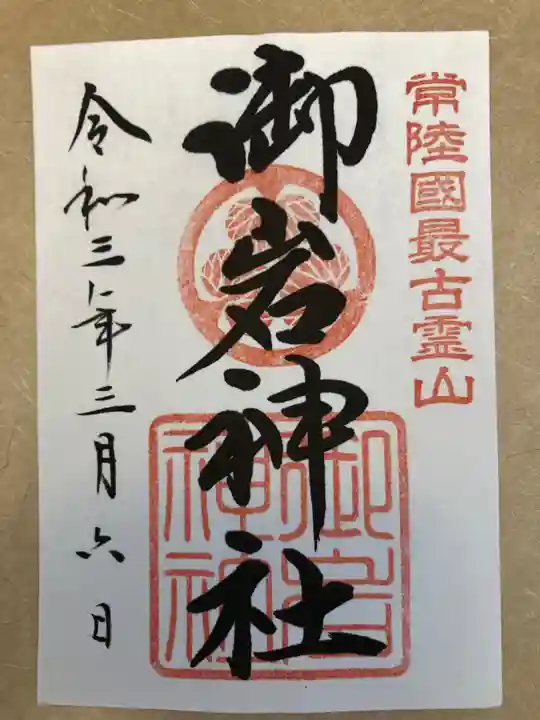 常陸國最古霊山
御岩神社
御岩
神社
令和三年三月六日